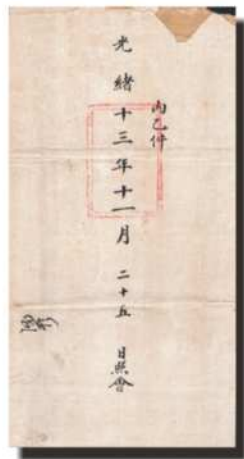 光緒十三年十一月二十五日照會
內乙件